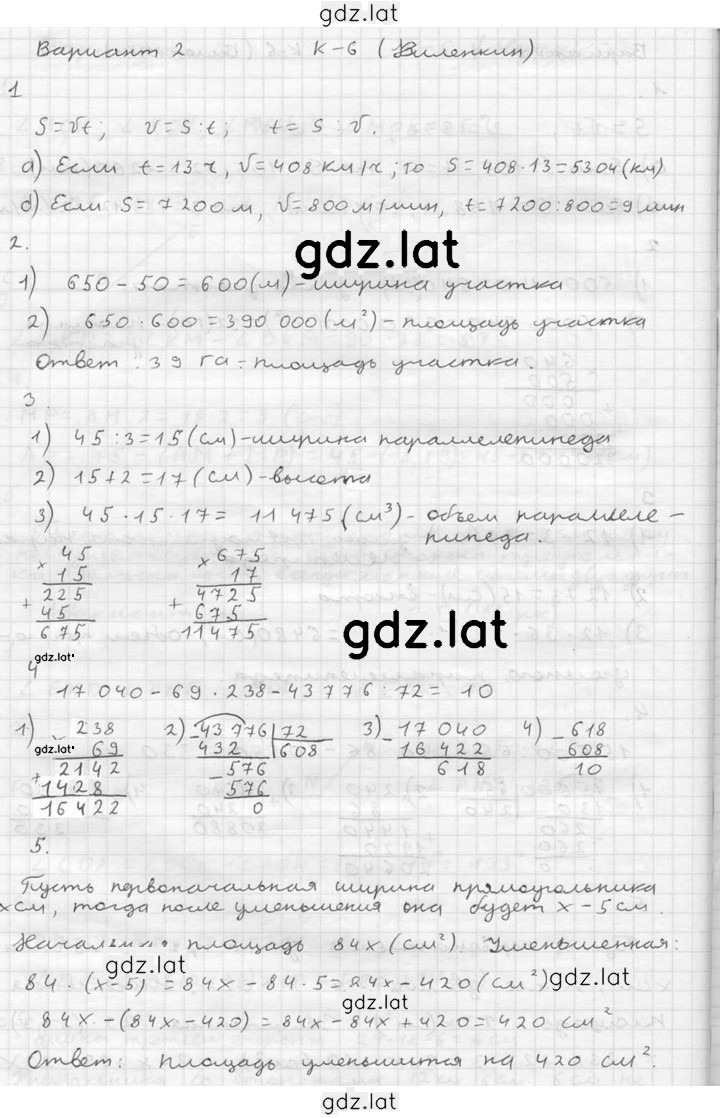 gdz.lat
Вариант 2 К-6 (Виленкин)
1
S=vt; v=S:t; t=S:v.
а) Если t=13 ч, v=408 км/ч; то S=408·13=5304(км)
б) Если S=7200м, v=800м/мин, t=7200:800=9 мин
2.
gdz.lat
1) 650-50=600(м)-ширина участка
2) 650·600=390 000(м²)-площадь участка
Ответ: 39 га-площадь участка.
3
1) 45:3=15(см)-ширина параллелепипеда
2) 15+2=17(см)-высота
3) 45·15·17= 11 475(см³)-объем параллеле-
пипеда.
×45
15
+225
45
675
×675
17
+4725
675
11475
gdz.lat
gdz.lat
4
17 040-69·238-43776:72= 10
1) 238
gdz.lat 69
+2142
1428
16422
2) -43776 72
432 608
-576
576
0
3) -17 040
16 422
618
4) -618
608
10
5.
Пусть первоначальная ширина прямоугольника
хсм, тогда после уменьшения она будет х-5см.
Начальная площадь 84х(см²). Уменьшенная:
gdz.lat
84·(х-5)=84х-84·5=84х-420(см²)
gdz.lat
gdz.lat
84х-(84х-420)=84х-84х+420=420 см²
Ответ: площадь уменьшится на 420 см².
gdz.lat